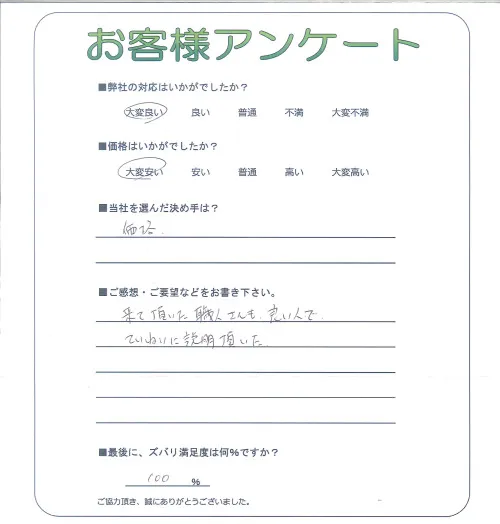 お客様アンケート
■弊社の対応はいかがでしたか？
大変良い 良い 普通 不満 大変不満
■価格はいかがでしたか？
大変安い 安い 普通 高い 大変高い
■当社を選んだ決め手は？
価格.
■ご感想・ご要望などをお書き下さい。
来て頂いた職人さんも、良い人で、
ていねいに説明頂いた.
■最後に、ズバリ満足度は何%ですか？
100 %
ご協力頂き、誠にありがとうございました。